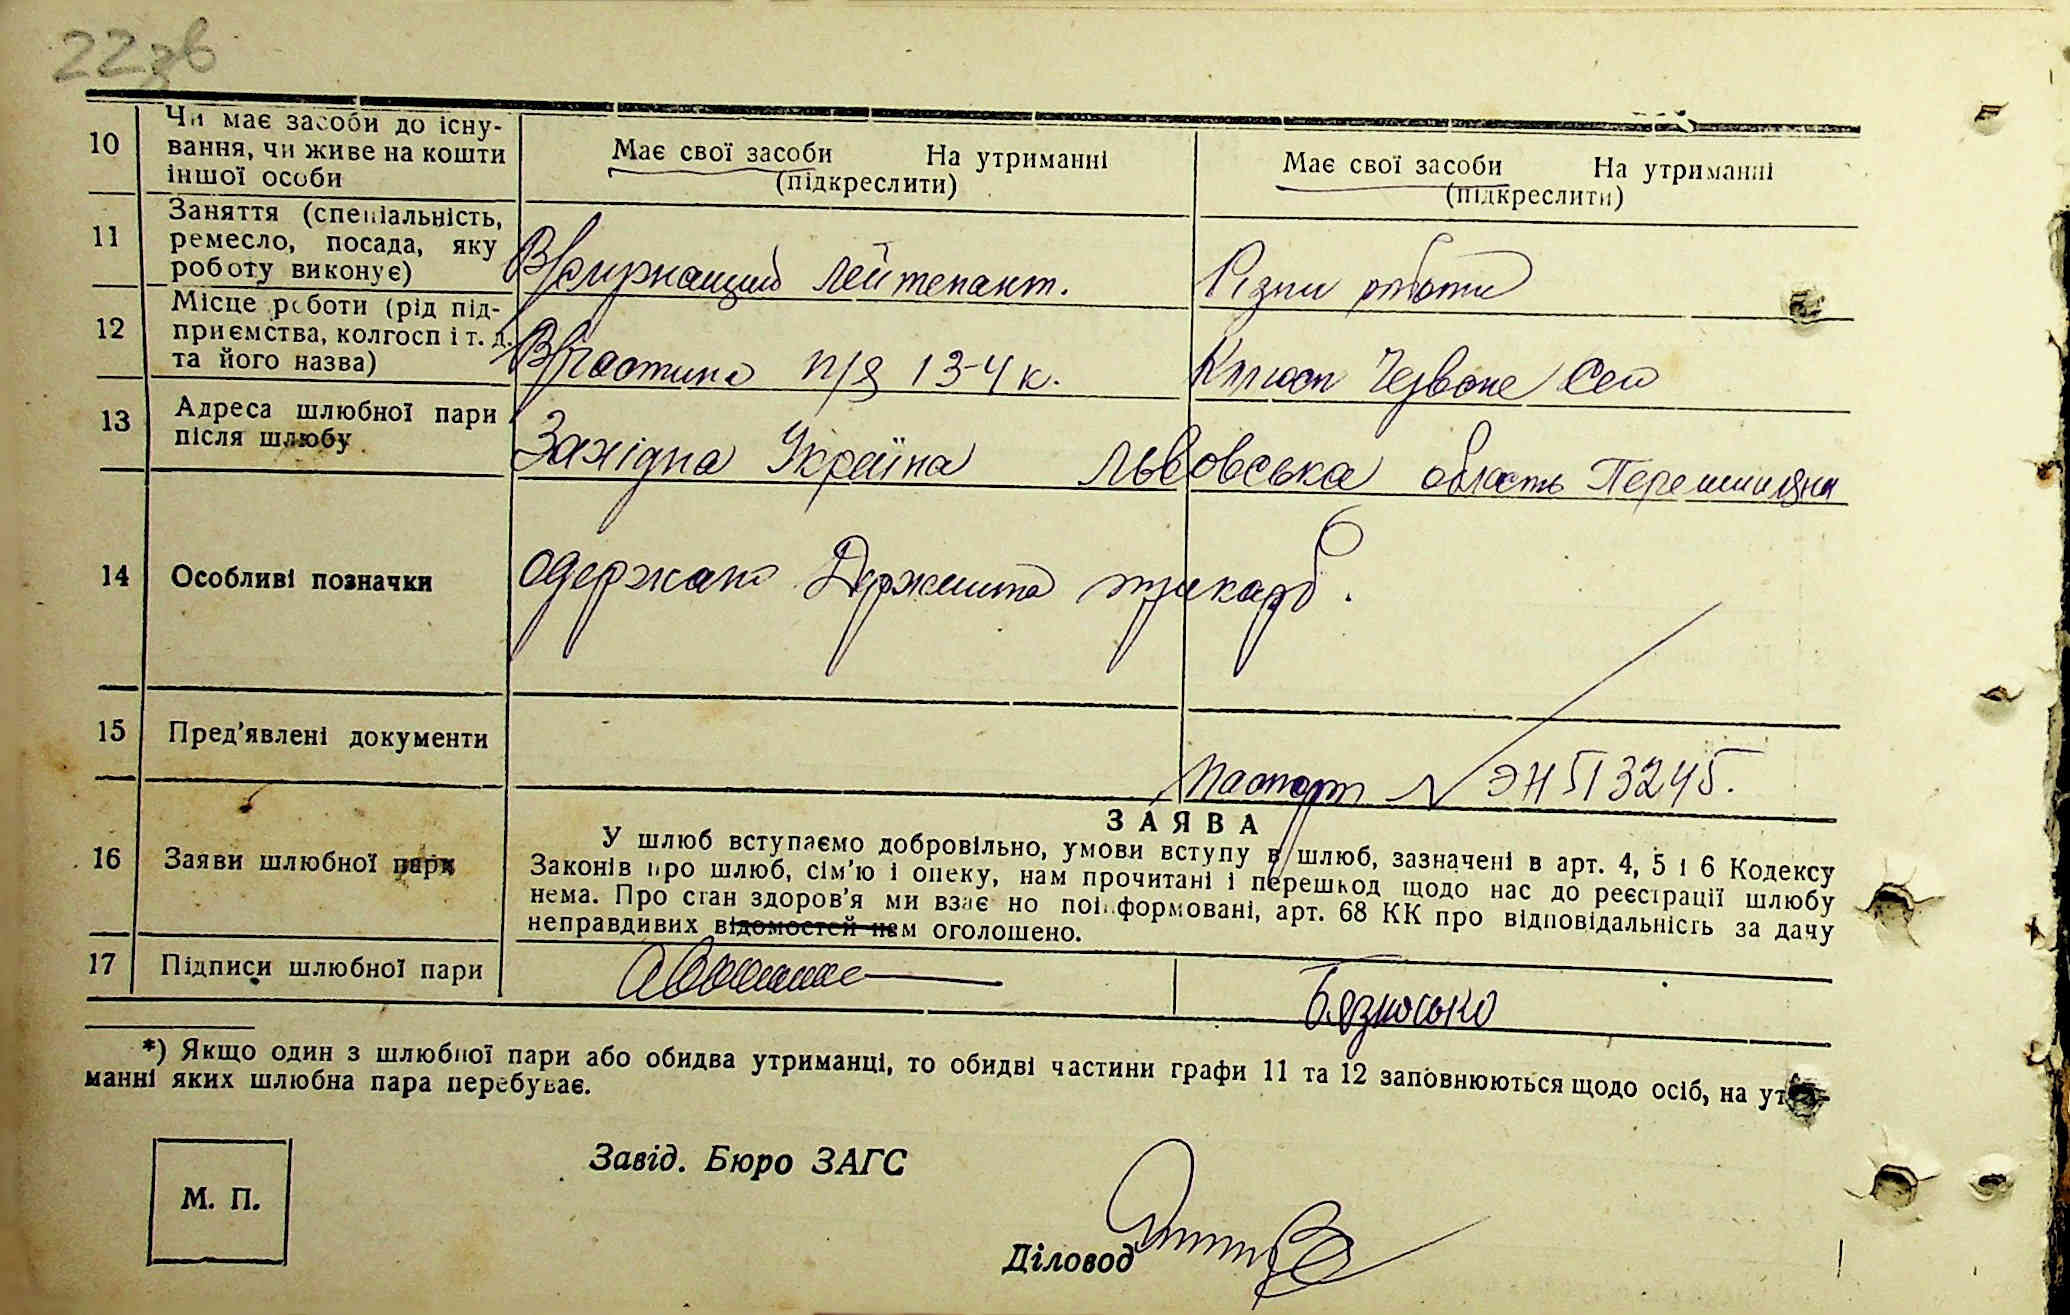 22зв
10 Чи має засоби до існу-
вання, чи живе на кошти
іншої особи
Має свої засоби На утриманні
(підкреслити)
Має свої засоби На утриманні
(підкреслити)
11 Заняття (спеціальність,
ремесло, посада, яку
роботу виконує)
В/служащий лейтенант.
Різни роботи
12 Місце роботи (рід під-
приємства, колгосп і т. д.
та його назва)
В/частина п/я 13-4 к.
Колгосп Червоне Село
13 Адреса шлюбної пари
після шлюбу
Західна Україна Львовська область Перемишляна
14 Особливі позначки
одержано Держмита три карб.
15 Пред'явлені документи
Паспорт № ЭН 513245.
16 Заяви шлюбної пари
ЗАЯВА
У шлюб вступаємо добровільно, умови вступу в шлюб, зазначені в арт. 4, 5 і 6 Кодексу
Законів про шлюб, сім'ю і опеку, нам прочитані і перешкод щодо нас до реєстрації шлюбу
нема. Про стан здоров'я ми взаємно поінформовані, арт. 68 КК про відповідальність за дачу
неправдивих відомостей нам оголошено.
17 Підписи шлюбної пари
*) Якщо один з шлюбної пари або обидва утриманці, то обидві частини графи 11 та 12 заповнюються щодо осіб, на утри-
манні яких шлюбна пара перебуває.
М. П.
Завід. Бюро ЗАГС
Діловод